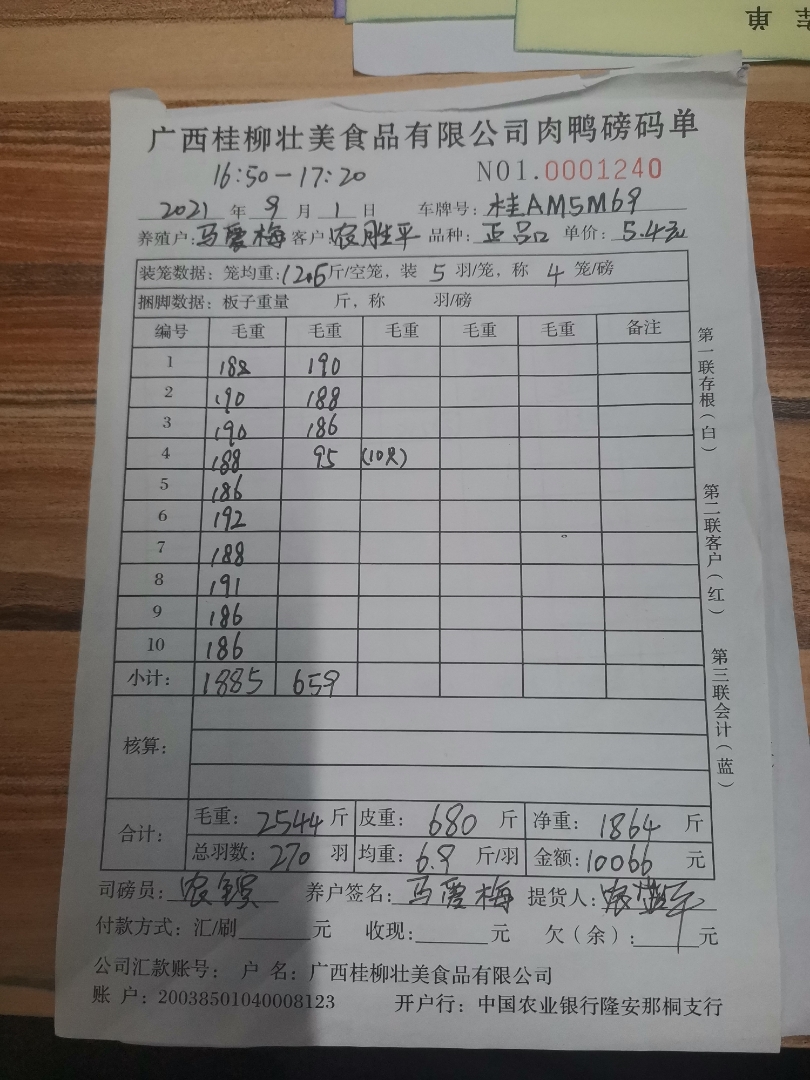 单
广西桂柳壮美食品有限公司肉鸭磅码单
16:50-17:20 NO1.0001240
2021 年 9 月 1 日 车牌号: 桂AM5M69
养殖户: 马霞梅 客户: 农胜平 品种: 正品 单价: 5.4元
装笼数据: 笼均重: 12.6斤/空笼, 装 5 羽/笼, 称 4 笼/磅
捆脚数据: 板子重量 斤, 称 羽/磅
编号 毛重 毛重 毛重 毛重 毛重 备注
1 188 190
2 190 188
3 190 186
4 188 95 (10只)
5 186
6 192
7 188
8 191
9 186
10 186
小计: 1885 659
核算:
合计: 毛重: 2544 斤 皮重: 680 斤 净重: 1864 斤
总羽数: 270 羽 均重: 6.9 斤/羽 金额: 10066 元
司磅员: 养户签名: 马霞梅 提货人:
付款方式: 汇/刷 元 收现: 元 欠(余): 元
公司汇款账号: 户 名: 广西桂柳壮美食品有限公司
账 户: 20038501040008123 开户行: 中国农业银行隆安那桐支行
第一联存根(白)
第二联客户(红)
第三联会计(蓝)